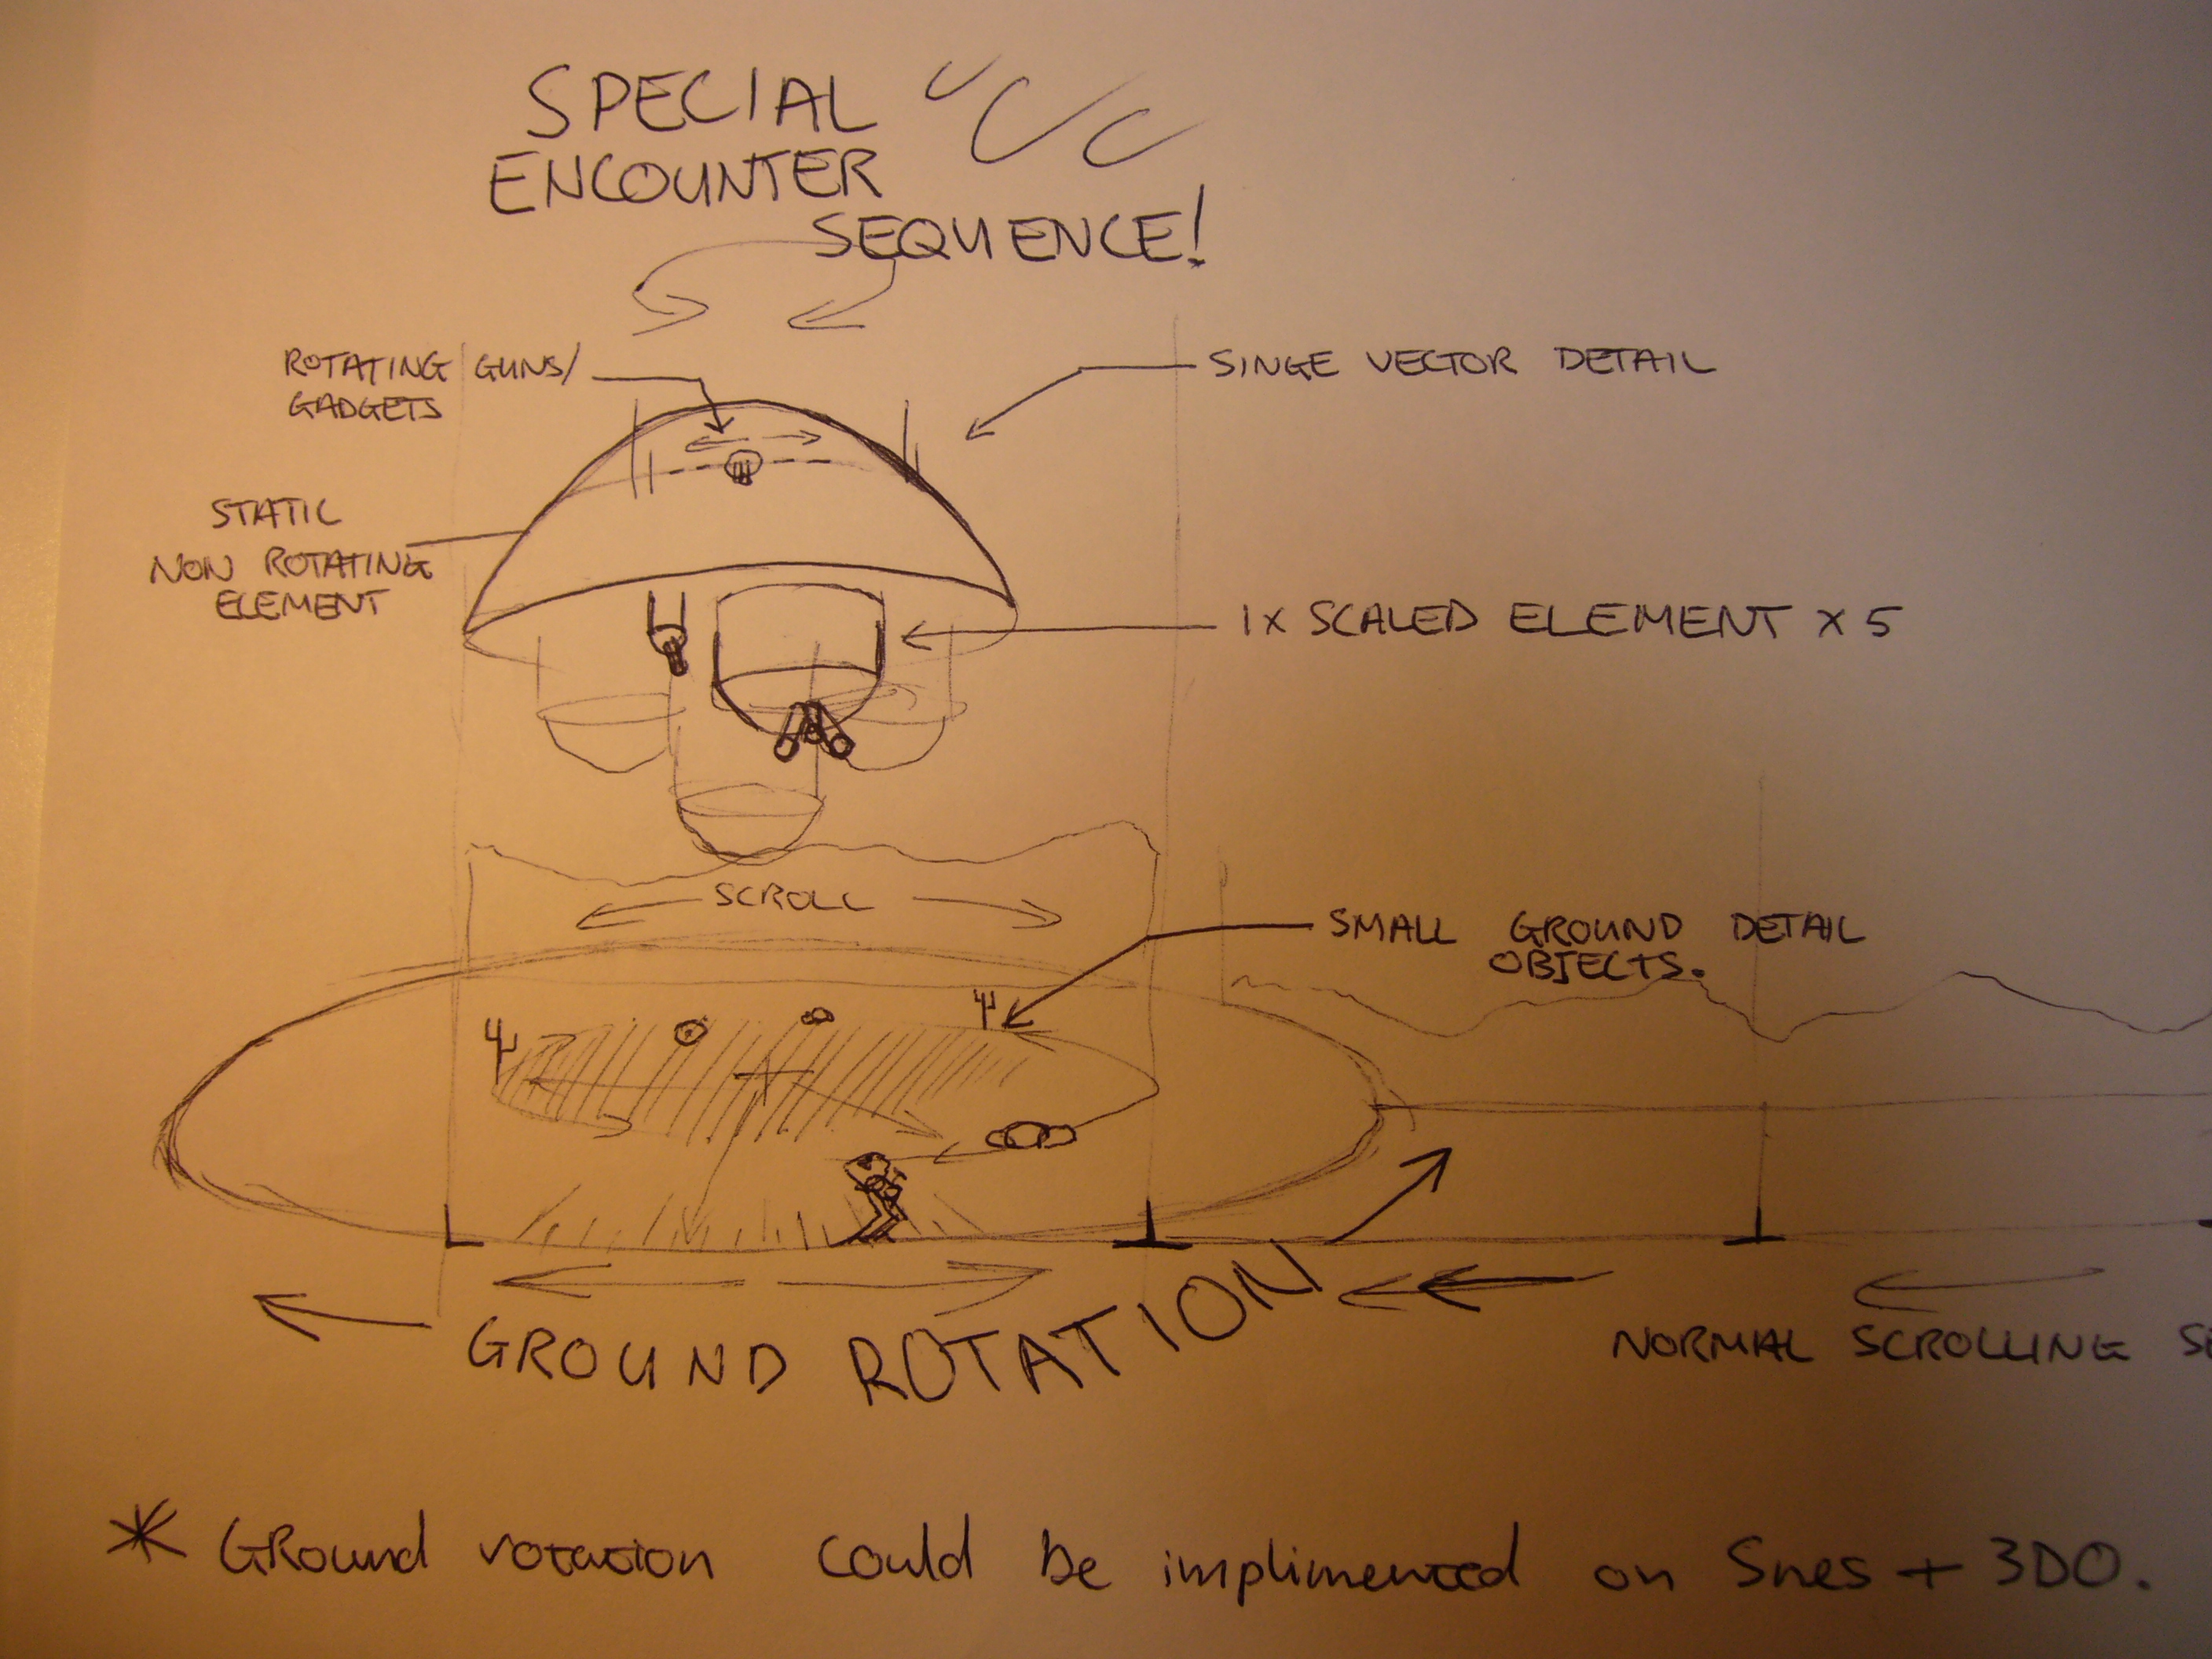 SPECIAL
ENCOUNTER
SEQUENCE!
ROTATING GUNS/
GADGETS
SINGE VECTOR DETAIL
STATIC
NON ROTATING
ELEMENT
1X SCALED ELEMENT X 5
SCROLL
SMALL GROUND DETAIL
OBJECTS.
GROUND ROTATION
NORMAL SCROLLING
* Ground rotation could be implimented on Snes + 3DO.